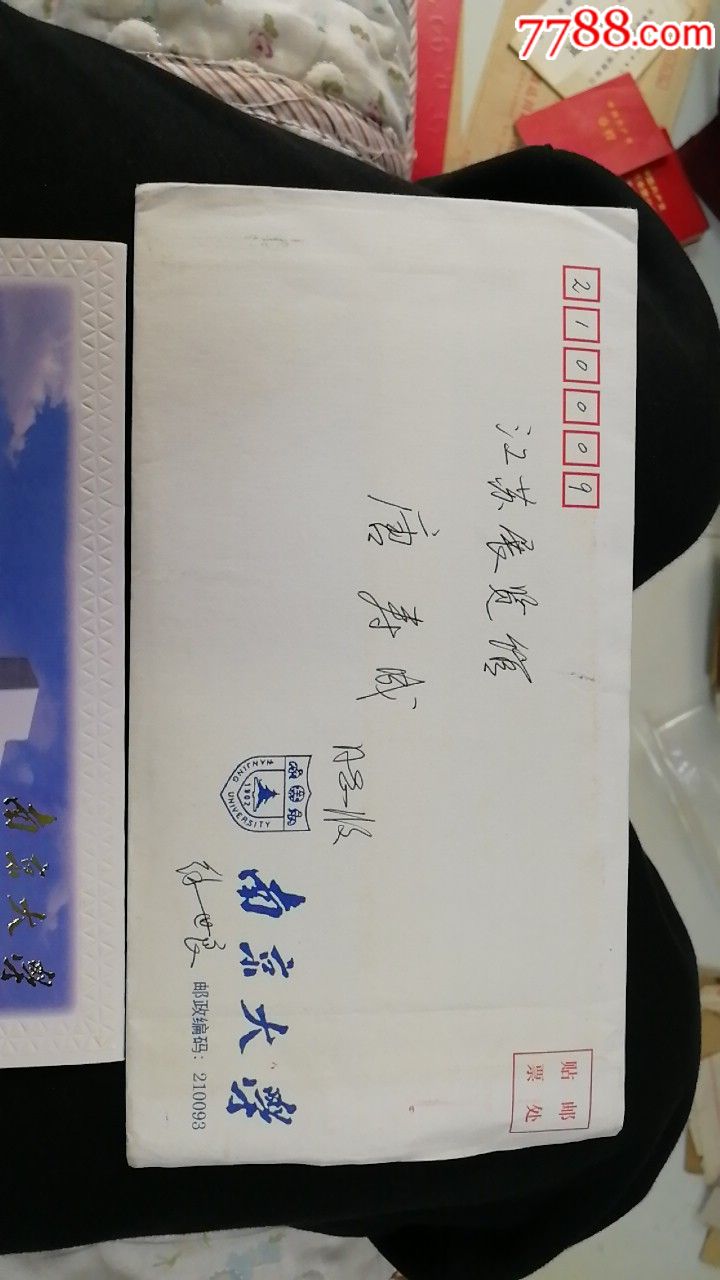 7788.com
210009
江苏展览馆
唐寿成
同志收
南京大学
NANJING UNIVERSITY
1902
南京大学
徐世良
邮政编码：210093
贴邮
票处
南京大学